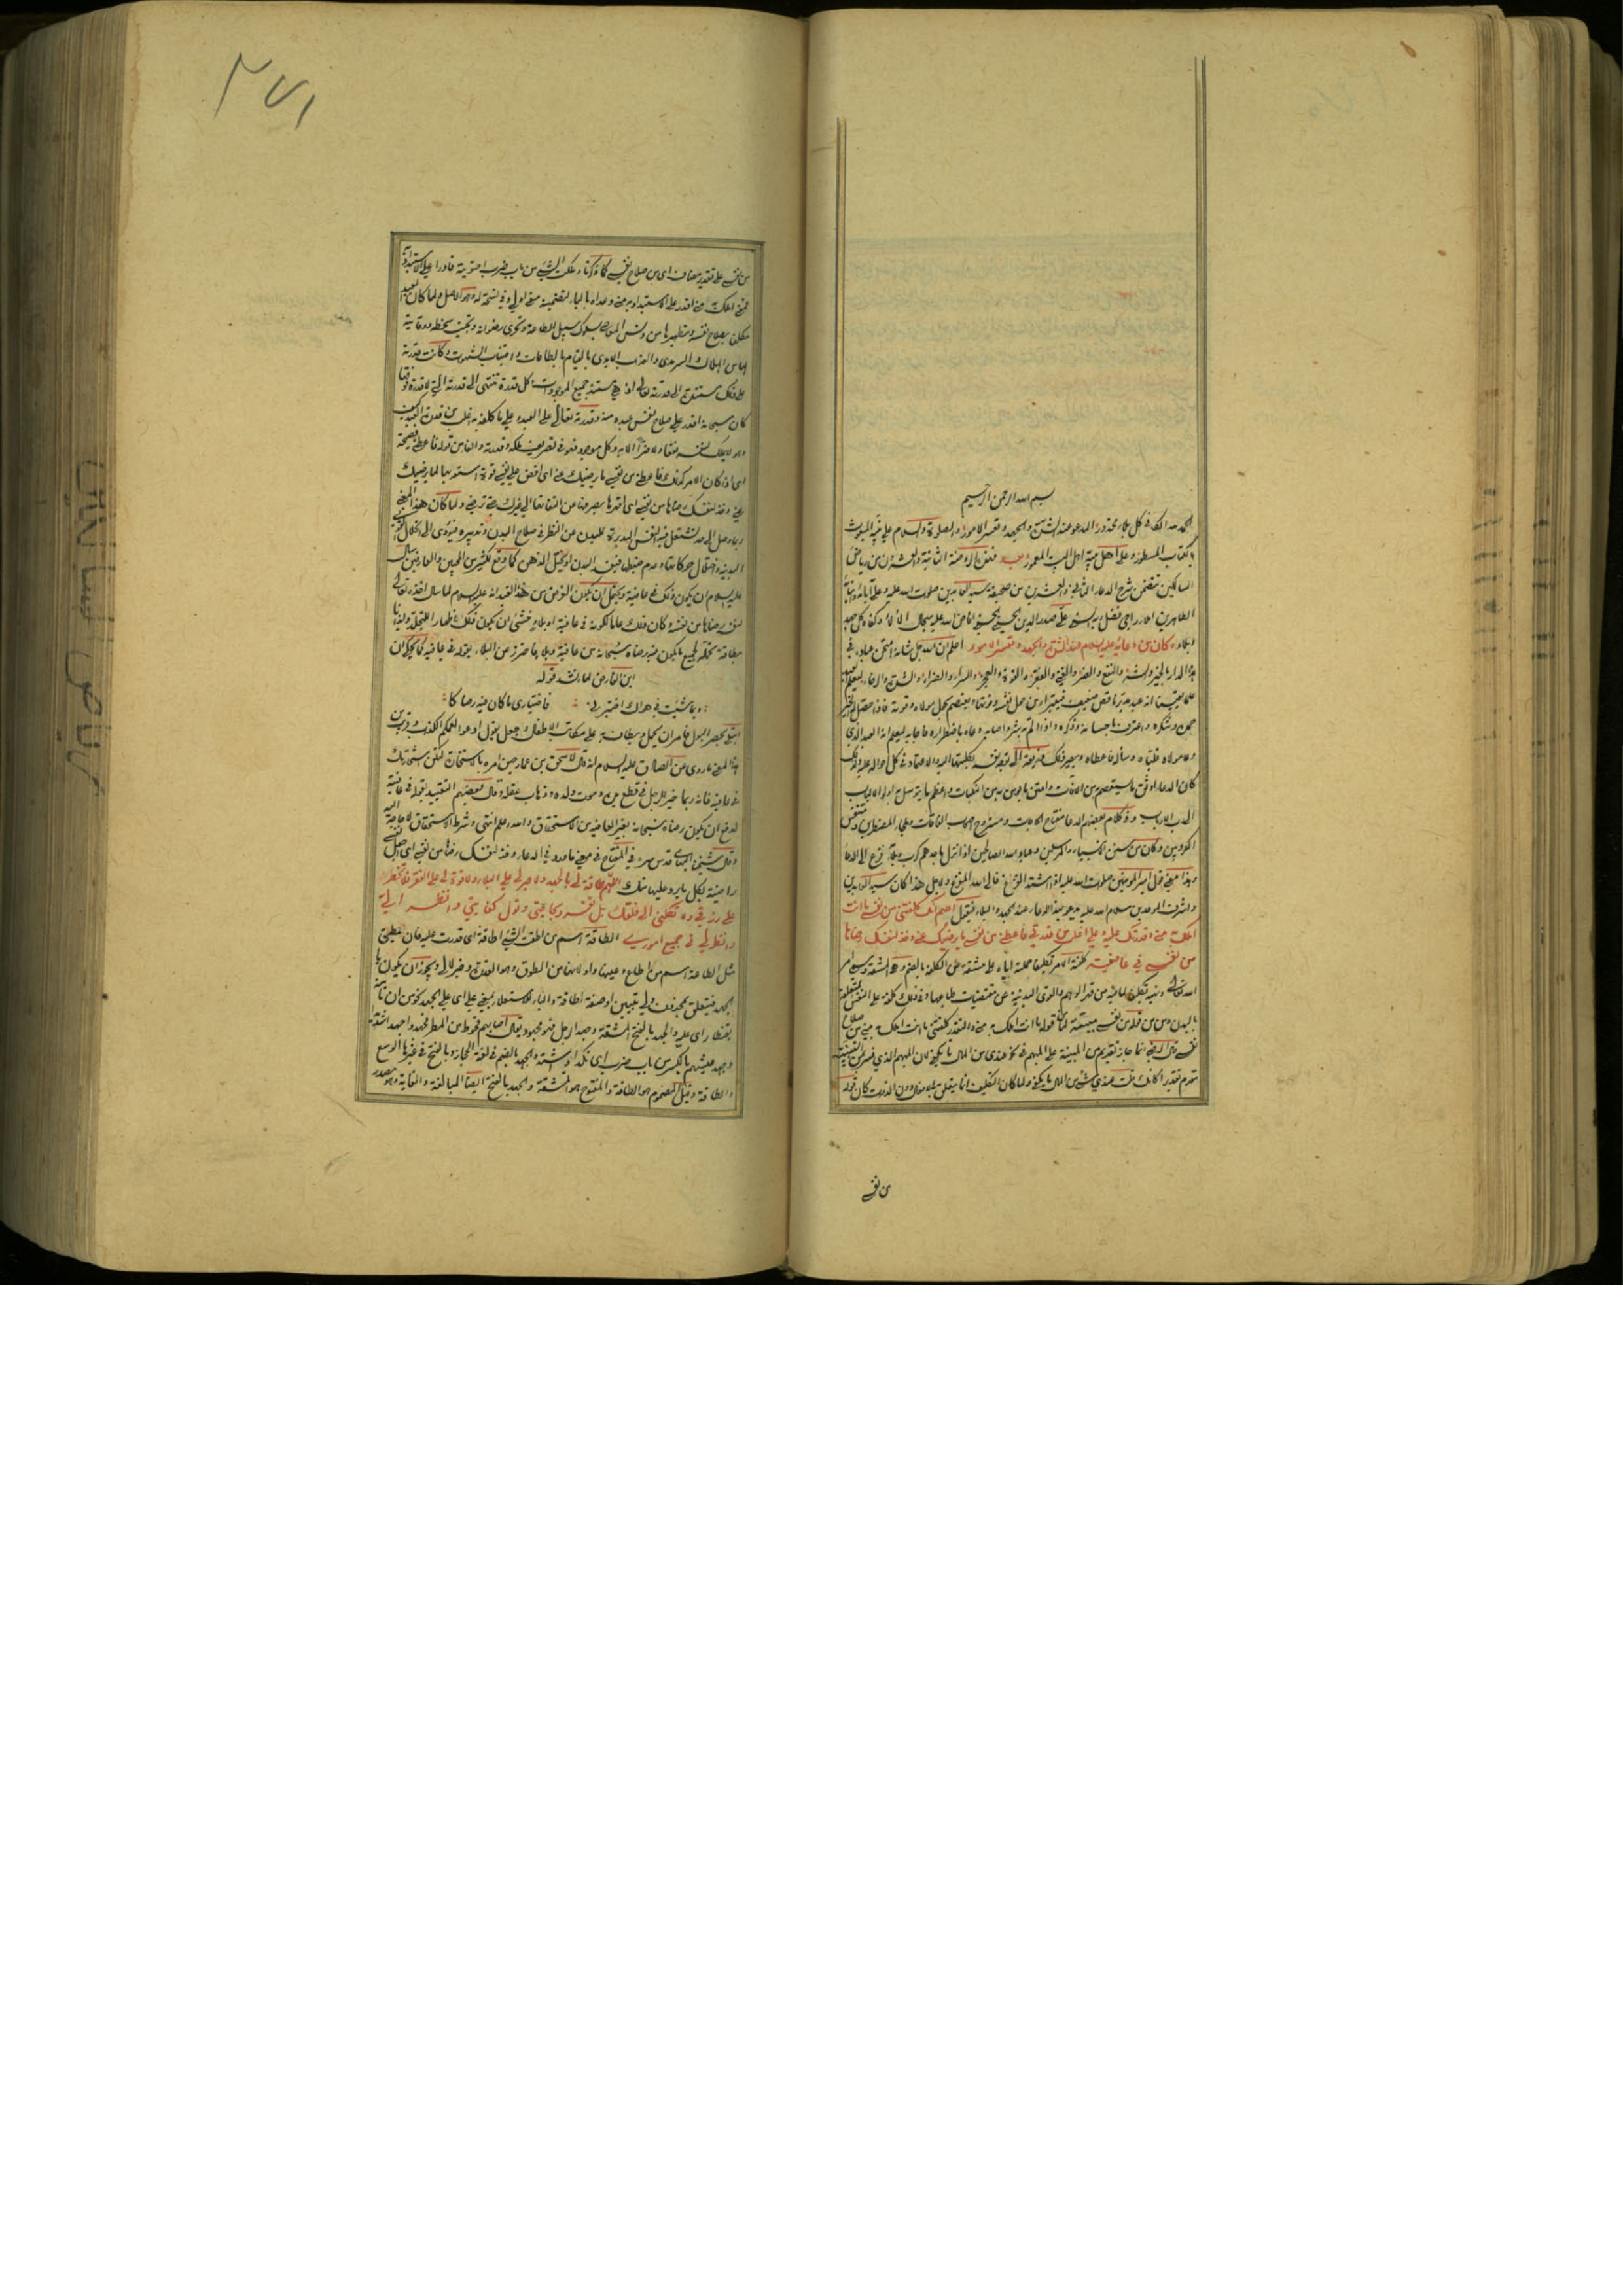 بسم الله الرحمن الرحيم
الحمد لله الكافي كل بلاء محذور المدعو عند الشدة والجهد وتعسر الامور والصلوة والسلام على نبيه المبعوث
بالكتاب المسطور وعلى اهل بيته اهل البيت المعمور وبعد فهذه الروضة الثانية والعشرون من رياض
السالكين تتضمن شرح الدعاء الثاني والعشرين من صحيفة سيد العابدين صلوات الله عليه وعلى آبائه وابنائه
الطاهرين املاء راجي فضل ربه السني علي صدر الدين الحسيني الحسني افاض الله عليه سجال الآلاء وكفاه كل جهد
وبلاء وكان من دعائه عليه السلام عند الشدة والجهد وتعسر الامور اعلم ان الله جل شانه امتحن عباده في
هذه الدار بالخير والشر والنفع والضر والغنى والفقر والقوة والعجز والسراء والضراء والشدة والرخاء ليعلم العبد
علما يقينيا انه عبد مدبر ناقص ضعيف فيتبرأ من حول نفسه وقوتها ويعتصم بحول مولاه وقوته فاذا حصل له الخير
حمده وشكره واعترف باحسانه وذكره واذا الم به شر اصابه دعاه باضطراره فاجابه ليعلم انه العبد الذي
دعا مولاه فلباه وسأله فاعطاه ويصير ذلك ذريعة الى توجه نفسه بكليتها اليه والاعتماد في كل احواله عليه ولذلك
كان الدعاء اوثق ما يستعصم به من الآفات وامتن ما يتوسل به من النكبات واعظم ما يتوسل به اولو الالباب
الى رب الارباب وفي كلام بعضهم الدعا مفتاح الحاجات ومستروح اصحاب الفاقات وملجأ المضطرين ومتنفس
المكروبين وكان من سنن الانبياء والمرسلين وعباد الله الصالحين اذا نزل باحدهم كرب وبلاء فزع الى الدعا
وهذا معنى قول امير المؤمنين صلوات الله عليه اذا اشتد الفزع فالى الله المفزع ولاجل هذا كان سيد العابدين
واشرف الموحدين سلام الله عليه يدعو بهذا الدعاء عند الجهد والبلاء فيقول اللهم انك كلفتني من نفسي ما انت
املك به مني وقدرتك عليه وعلي اغلب من قدرتي فاعطني من نفسي ما يرضيك عني وخذ لنفسك رضاها
من نفسي في عافية كلفه الامر تكليفا حمله اياه على مشقة من الكلفة بالضم وهي المشقة وسمي امر
الله تعالى ونهيه تكليفا لما فيه من قهر الوهم والقوى البدنية عن مقتضيات طباعها وفي ذلك كلفة على النفس المتعلقة
بالبدن ومن من قوله من نفسي مبينة لما في قوله ما انت املك به مني والتقدير كلفتني ما انت املك به مني من صلاح
نفسي قال الرضي انما جاز تقديم من المبينة على المبهم في نحو عندي من المال ما يكفي لان المبهم الذي فسر بمن التبيينية
مقدم تقديرا كانك قلت عندي شيء من المال ما يكفي ولما كان التكليف انما يتعلق بالافعال دون الذوات كان قوله
من نفسي
٢٧١
من نفسي على تقدير مضاف اى من صلاح نفسي كما ذكرنا وملك الشيء من باب ضرب احتويته قادرا على الاستبداد به
فمعنى املك به مني اقدر على الاستبداد به مني وعداه بالباء لتضمينه معنى اولى وفي نسخة له وهو الاصل ولما كان العبد
مكلفا بصلاح نفسه وتطهيرها من دنس المعاصي بسلوك سبيل الطاعة وتحرى رضوانه وتجنب سخطه ووقاية
لها من الهلاك السرمدى والعذاب الابدى بالقيام بالطاعات واجتناب الشهوات وكانت قدرته
على ذلك مستندة الى قدرته تعالى اذ هي مستند جميع الموجودات فكل قدرة تنتهى الى قدرته التي لا قدرة فوقها
كان سبحانه اقدر على صلاح نفس عبده منه وقدرته تعالى على العبد وعلى ما كلفه به اغلب من قدرة العبد
وهو لا يملك لنفسه نفعا ولا ضرا الا به وكل موجود فهو في تصريف ملكه وقدرته والفاء من قوله فاعطني فصيحة
اى اذا كان الامر كذلك فاعطني من نفسي ما يرضيك عني اى افض على نفسي قوة استعد بها لما يرضيك
عني وخذ لنفسك رضاها من نفسي اى اقدرها بصرفها من التفاتها الى غيرك حتى ترضى ولما كان هذا المعنى
ربما وصل الى حد تشتغل فيه النفس المدبرة للبدن عن النظر في صلاح البدن وتدبيره فيؤدى الى اختلال القوى
البدنية واختلال حركاتها وعدم ضبطها فيضعف البدن او يختل الذهن كما وقع لكثير من المحبين والعارفين سأل
عليه السلام ان يكون ذلك في عافية ويحتمل ان يكون الغرض من هذا القيد انه عليه السلام لما سأل اخذه تعالى
لنفسه رضاها من نفسه كان ذلك عاما لكونه في عافية او بلاء فخشى ان يكون ذلك اظهارا للتجلد وايذانا
بطاقة تحمله لجميع ما يكون فيه رضاه سبحانه من عافية وبلاء فاحترز من البلاء بقوله في عافية كما يحكى ان
ابن الفارض لما انشد قوله
وبما شئت في هواك اختبرني فاختياري ما كان فيه رضاكا
ابتلي بحصر البول فامر ان يحمل ويطاف به على مكاتب الاطفال وجعل يقول ادعوا لعمكم الكذاب وقريب من
هذا المعنى ما روى عن الصادق عليه السلام انه قال لاسحق بن عمار حين امره بالاستخارة لتكن استخارتك
في عافية فانه ربما خير للرجل في قطع يده وموت ولده وذهاب عقله وقال بعضهم التقييد بقوله في عافية
لدفع ان يكون رضاه سبحانه بغير العافية من الاستحقاق والله اعلم انتهى وشرط الاستحقاق لا حاجة اليه
وقال شيخنا البهائي قدس سره في المفتاح في معنى ما ورد في الدعاء وخذ لنفسك رضاها من نفسي اى اجعل نفسي
راضية بكل ما يرد عليها منك اللهم لا طاقة لي بالجهد ولا صبر لي على البلاء ولا قوة لي على الفقر فلا تحظر
علي رزقي ولا تكلني الى خلقك بل تفرد بحاجتي وتول كفايتي وانظر الي
وانظر لي في جميع اموري الطاقة اسم من اطقت الشيء اطاقة اى قدرت عليه فان مطيق
مثل الطاعة اسم من اطاع وعينها واو لانها من الطوق وهو القدرة وخبر لا لي ويجوز ان يكون بالجهد
الجهد فيتعلق بمحذوف ولي تبيين او صفة لطاقة والباء للاستعلاء بمعنى على اى على الجهد نحو من ان تأمنه
بقنطار اى عليه والجهد بالفتح المشقة وجهد الرجل فهو مجهود يقال اصابهم قحوط من المطر فجهدوا جهدا شديدا
وجهد عيشهم بالكسر من باب ضرب اى نكد واشتد والجهد بالضم في لغة الحجاز وبالفتح في غيرها الوسع
والطاقة وقيل المضموم هو الطاقة والمفتوح هو المشقة والجهد بالفتح ايضا المبالغة والغاية وهو مصدر